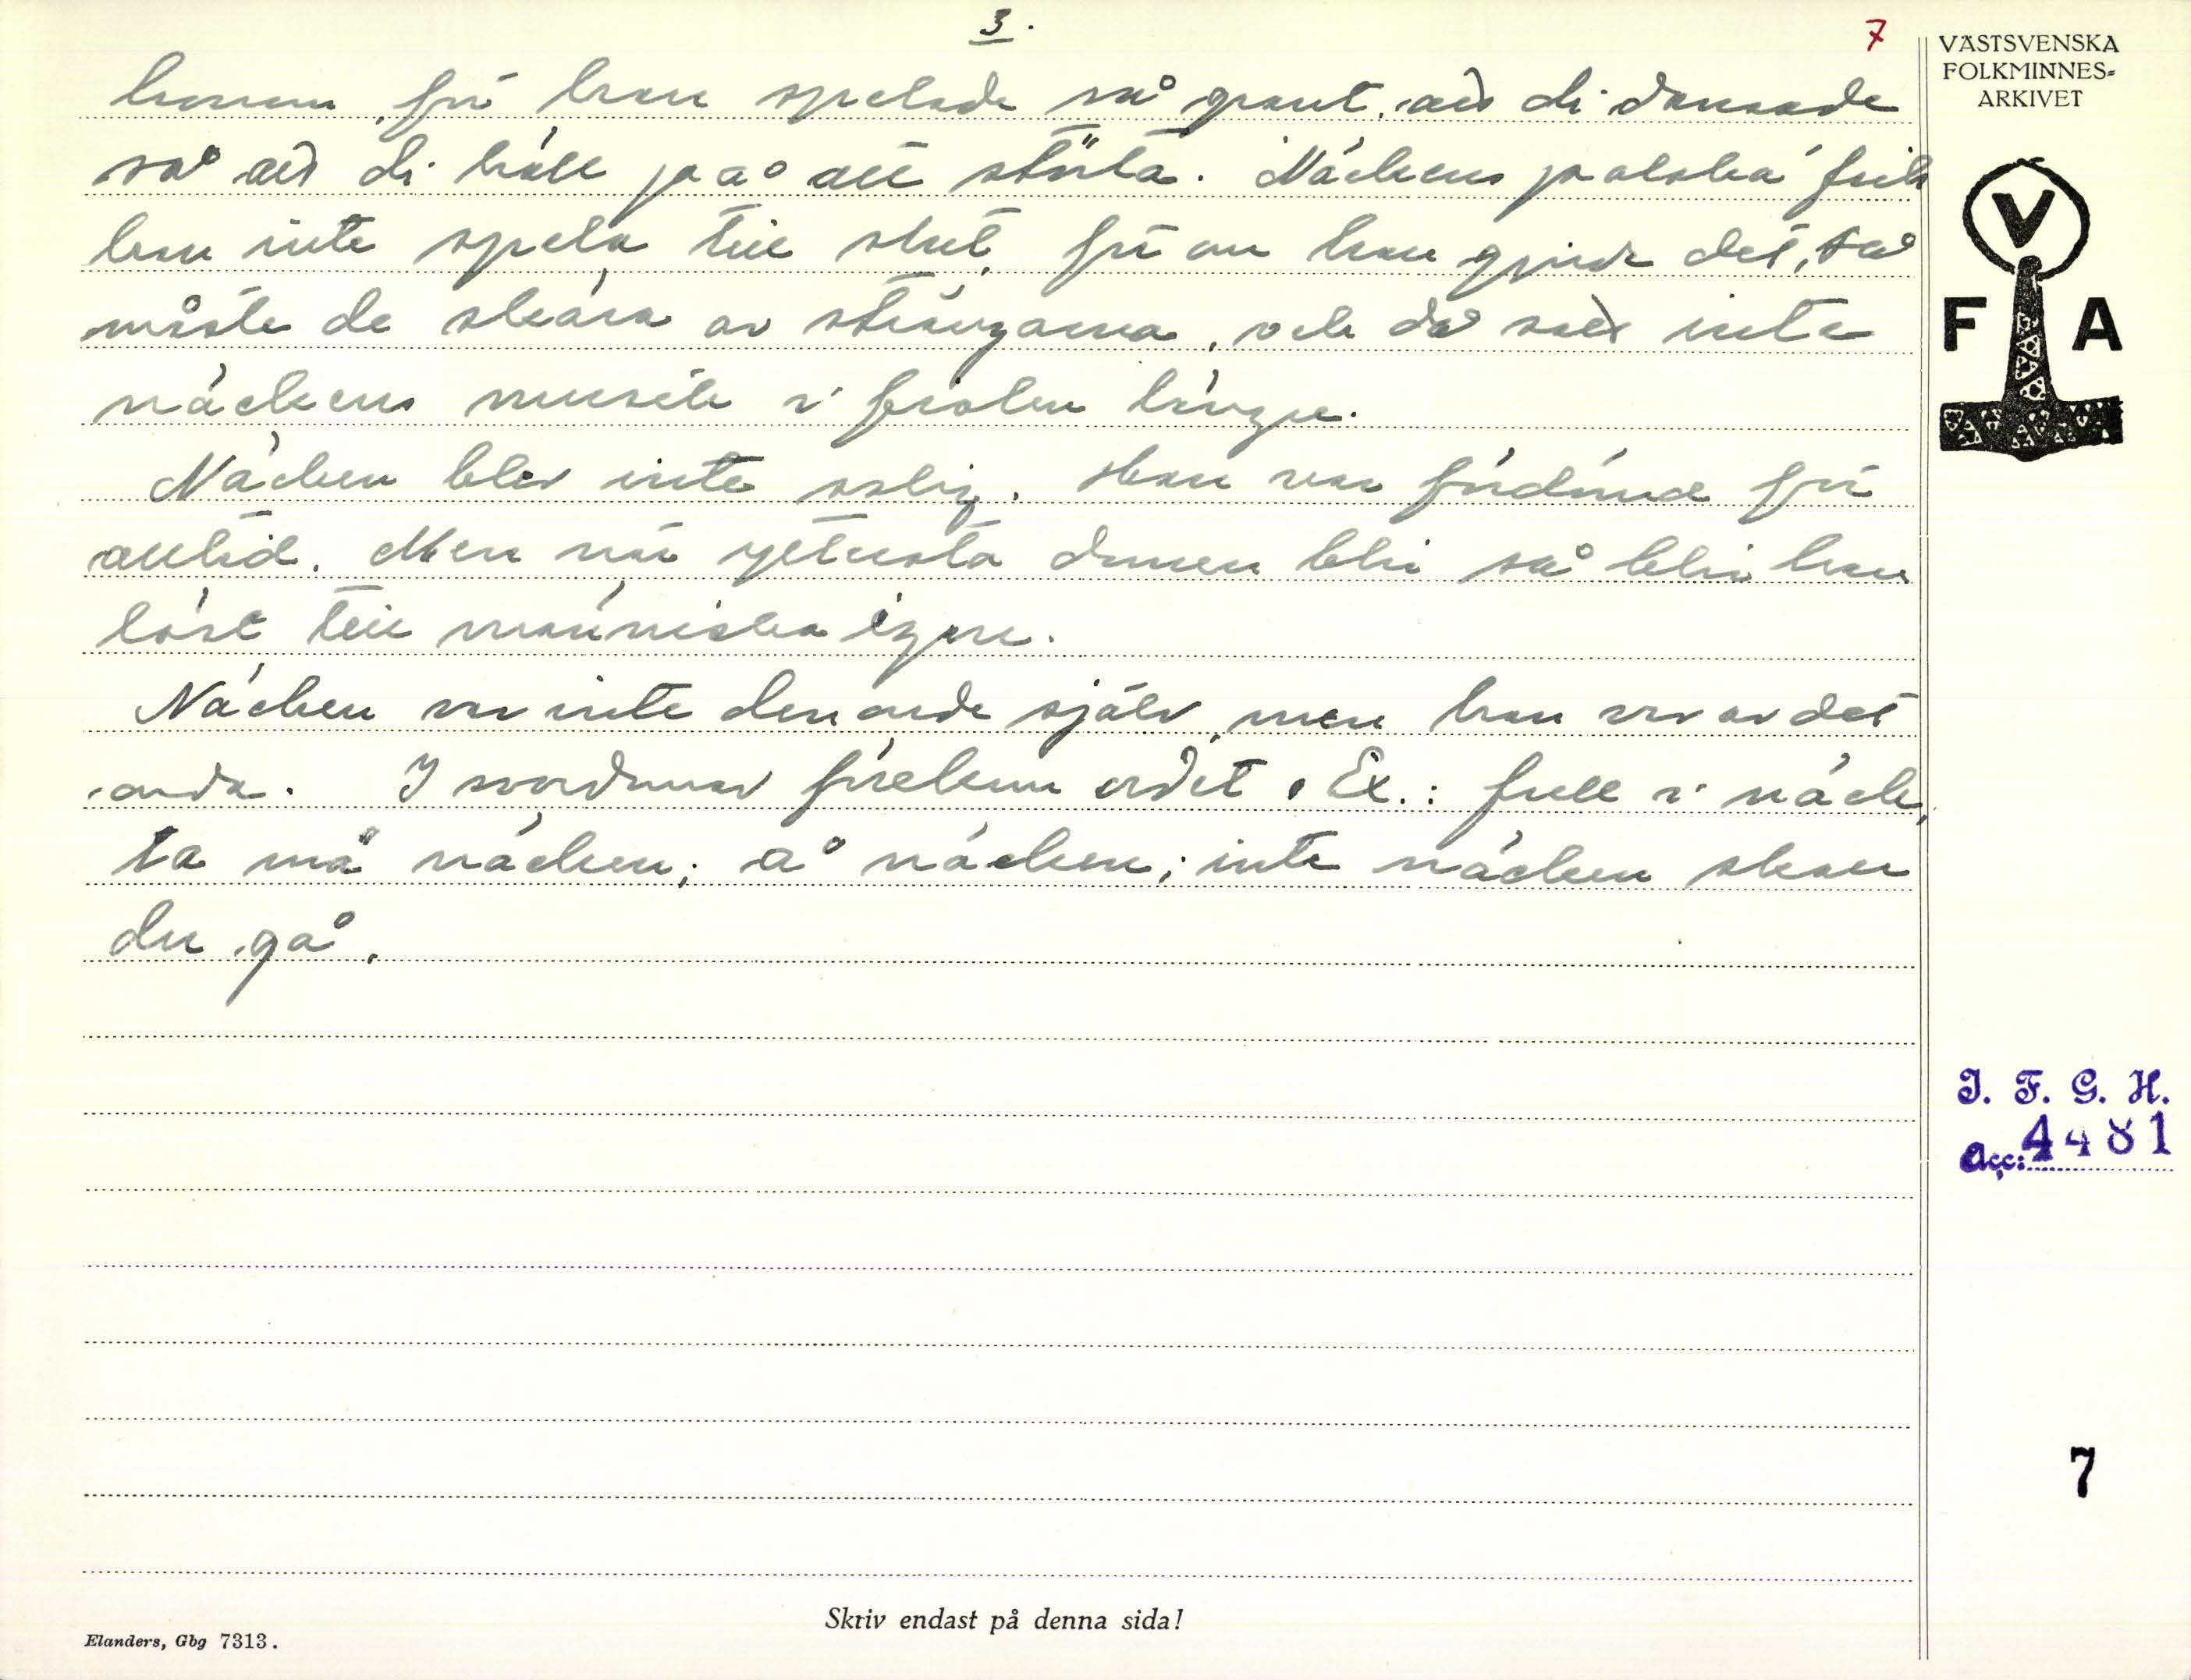 3.
7
VÄSTSVENSKA
FOLKMINNES-
ARKIVET
honom, för han spelade så grant, att di dansade
så att di höll på att störta. Näckens polska fick
han inte spela till slut, för om han gjorde det, så
måste de skära av strängarna, och då satt inte
näckens musik i fiolen längre.
Näcken blev inte salig. Han var fördömd för
alltid. Men när yttersta domen blir så blir han
löst till människa igen.
Näcken var inte den onde själv, men han var av det
onda. I svordomar förekom ordet. Ex.: full i näck,
ta mä näcken; å näcken; inte näcken skall
du gå.
V
F A
I. F. G. H.
Acc: 4481
7
Skriv endast på denna sida!
Elanders, Gbg 7313.